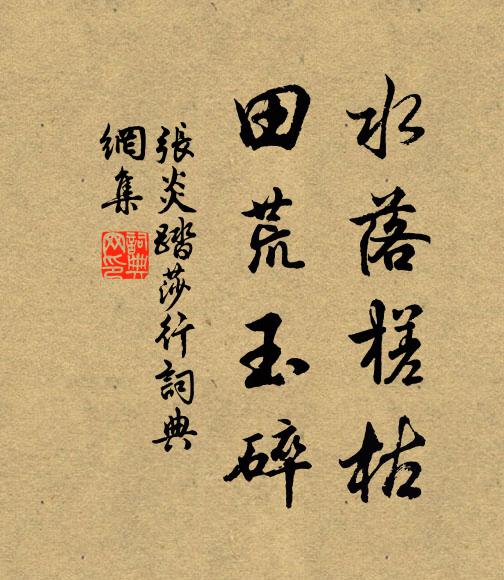 水落槎枯
田荒玉碎
張炎踏莎行詞典
網集
詞典
网印